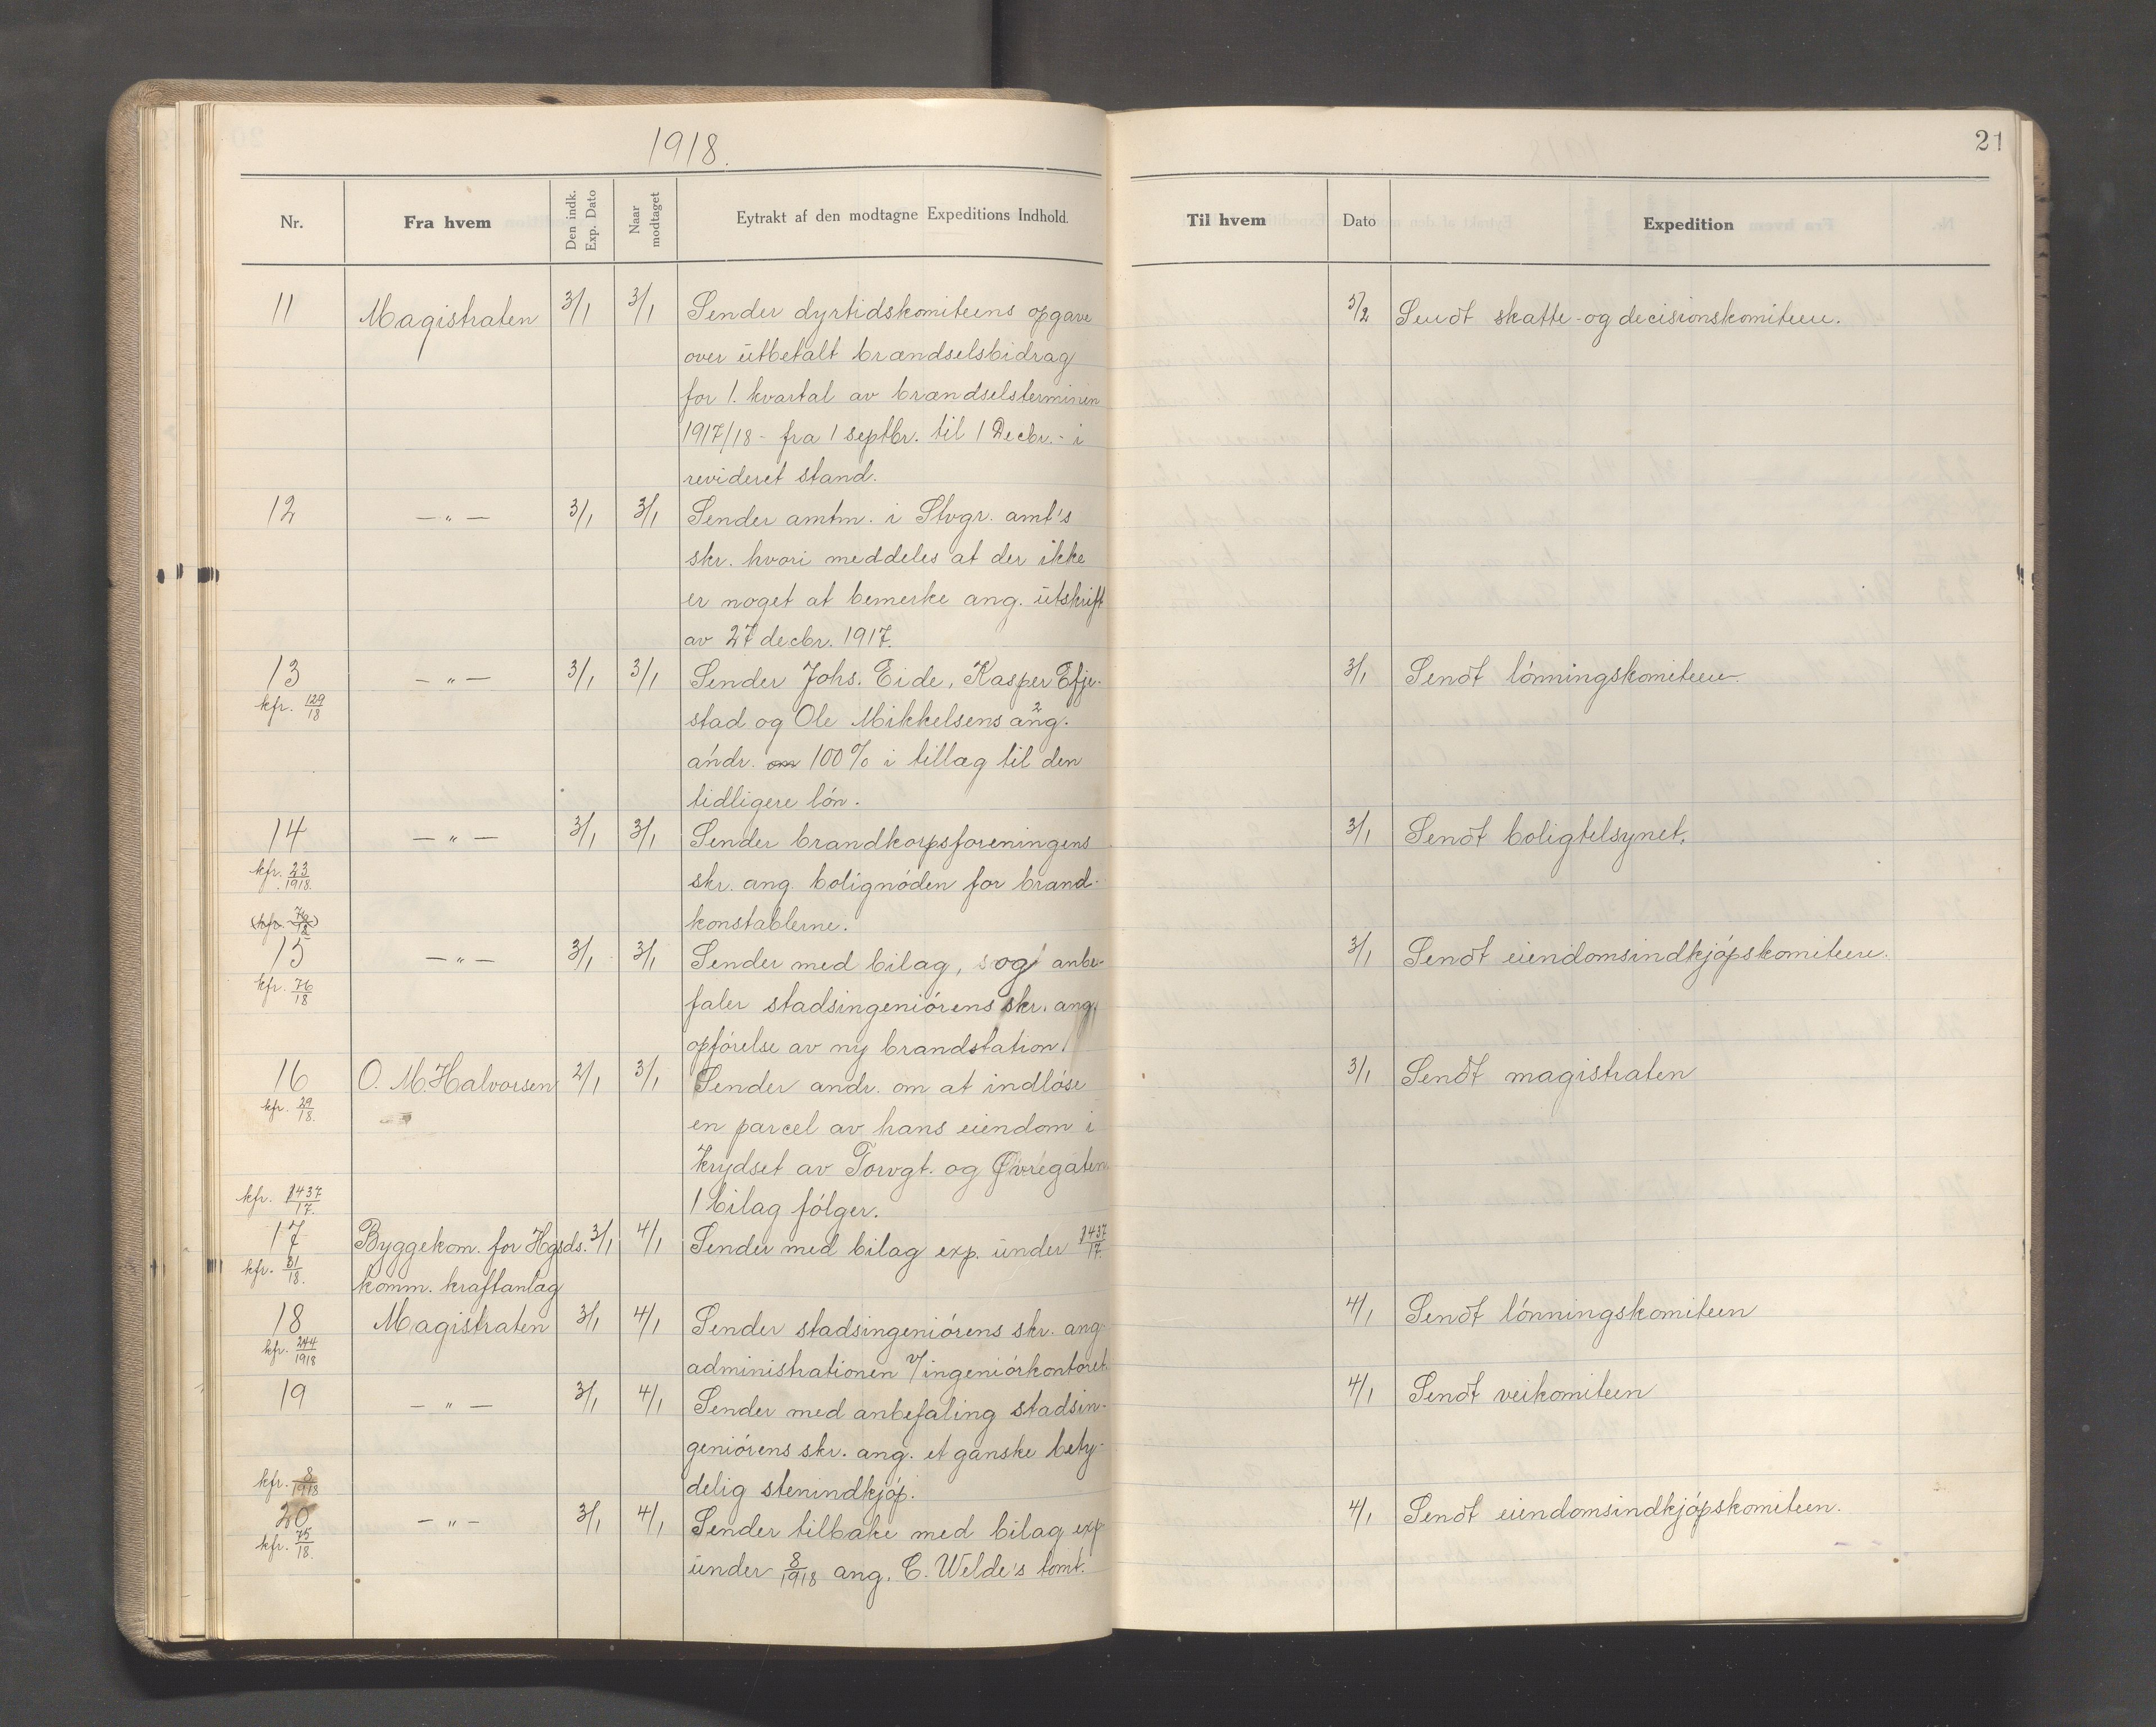 1918.
21
Nr. Fra hvem Den indk. Exp. Dato Naar modtaget Eytrakt af den modtagne Expeditions Indhold. Til hvem Dato Expedition
11 Magistraten 3/1 3/1 Sender dyrtidskomiteens opgave 5/2 Sendt skatte- og decisionskomiteen.
over utbetalt brændselsbidrag
for 1. kvartal av brændselsterminen
1917/18 - fra 1 septbr. til 1 Decbr. - i
revideret stand.
12 — " — 3/1 3/1 Sender amtm. i Stvgr. amt's
skr. hvori meddeles at der ikke
er noget at bemerke ang. utskrift
av 27 decbr. 1917.
13 — " — 3/1 3/1 Sender Johs. Eide, Kasper Efje- 3/1 Sendt lønningskomiteen.
kfr. 129/18 stad og Ole Mikkelsens ang.
andr. om 100% i tillæg til den
tidligere løn.
14 — " — 3/1 3/1 Sender brandkorpsforeningens 3/1 Sendt boligtelsynet.
kfr. 23/1918. skr. ang. bolignøden for brand-
(kfr. 76/18) konstablerne.
15 — " — 3/1 3/1 Sender med bilag, og anbe- 3/1 Sendt eiendomsindkjøpskomiteen.
kfr. 76/18 faler stadsingeniørens skr. ang.
opførelse av ny brandstation.
16 O. M. Halvorsen 2/1 3/1 Sender andr. om at indløse 3/1 Sendt magistraten
kfr. 29/18. en parcel av hans eiendom i
krydset av Torvgt. og Øvregaten.
kfr. 1437/17. 1 bilag følger.
17 Byggekom. for Hgsds. 3/1 4/1 Sender med bilag exp. under 1437/17.
kfr. 81/18. komm. kraftanlæg
18 Magistraten 3/1 4/1 Sender stadsingeniørens skr. ang. 4/1 Sendt lønningskomiteen
kfr. 244/1918 administrationen v/ingeniørkontoret.
19 — " — 3/1 4/1 Sender med anbefaling stadsin- 4/1 Sendt veikomiteen
geniørens skr. ang. et ganske bety-
kfr. 8/1918 delig stenindkjøp.
20 — " — 3/1 4/1 Sender tilbake med bilag exp. 4/1 Sendt eiendomsindkjøpskomiteen.
kfr. 75/18. under 8/1918 ang. C. Welde's tomt.